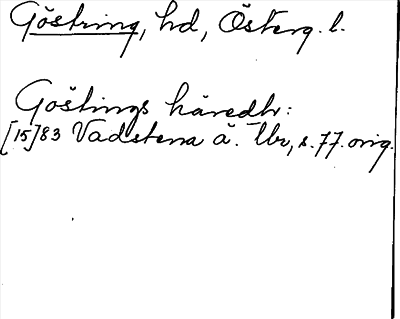 Göstring, hd, Österg. l.
Göstings häredh:
[15]83 Vadstena ä. tbr, s. 77. orig.